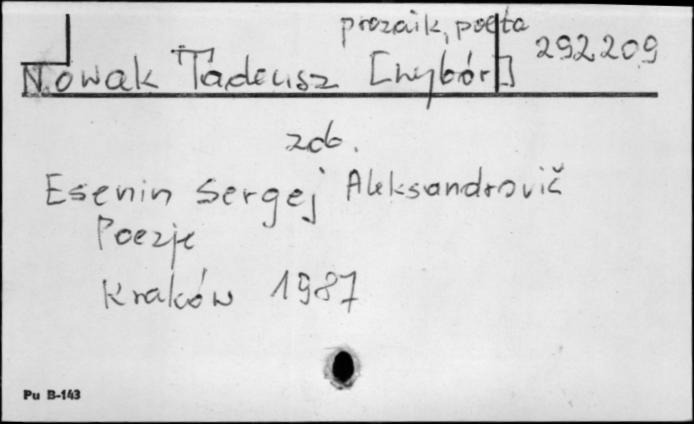 prozaik, poeta
Nowak Tadeusz [wybór] 292209
zob.
Esenin Sergej Aleksandrovič
Poezje
Kraków 1987
Pu B-143